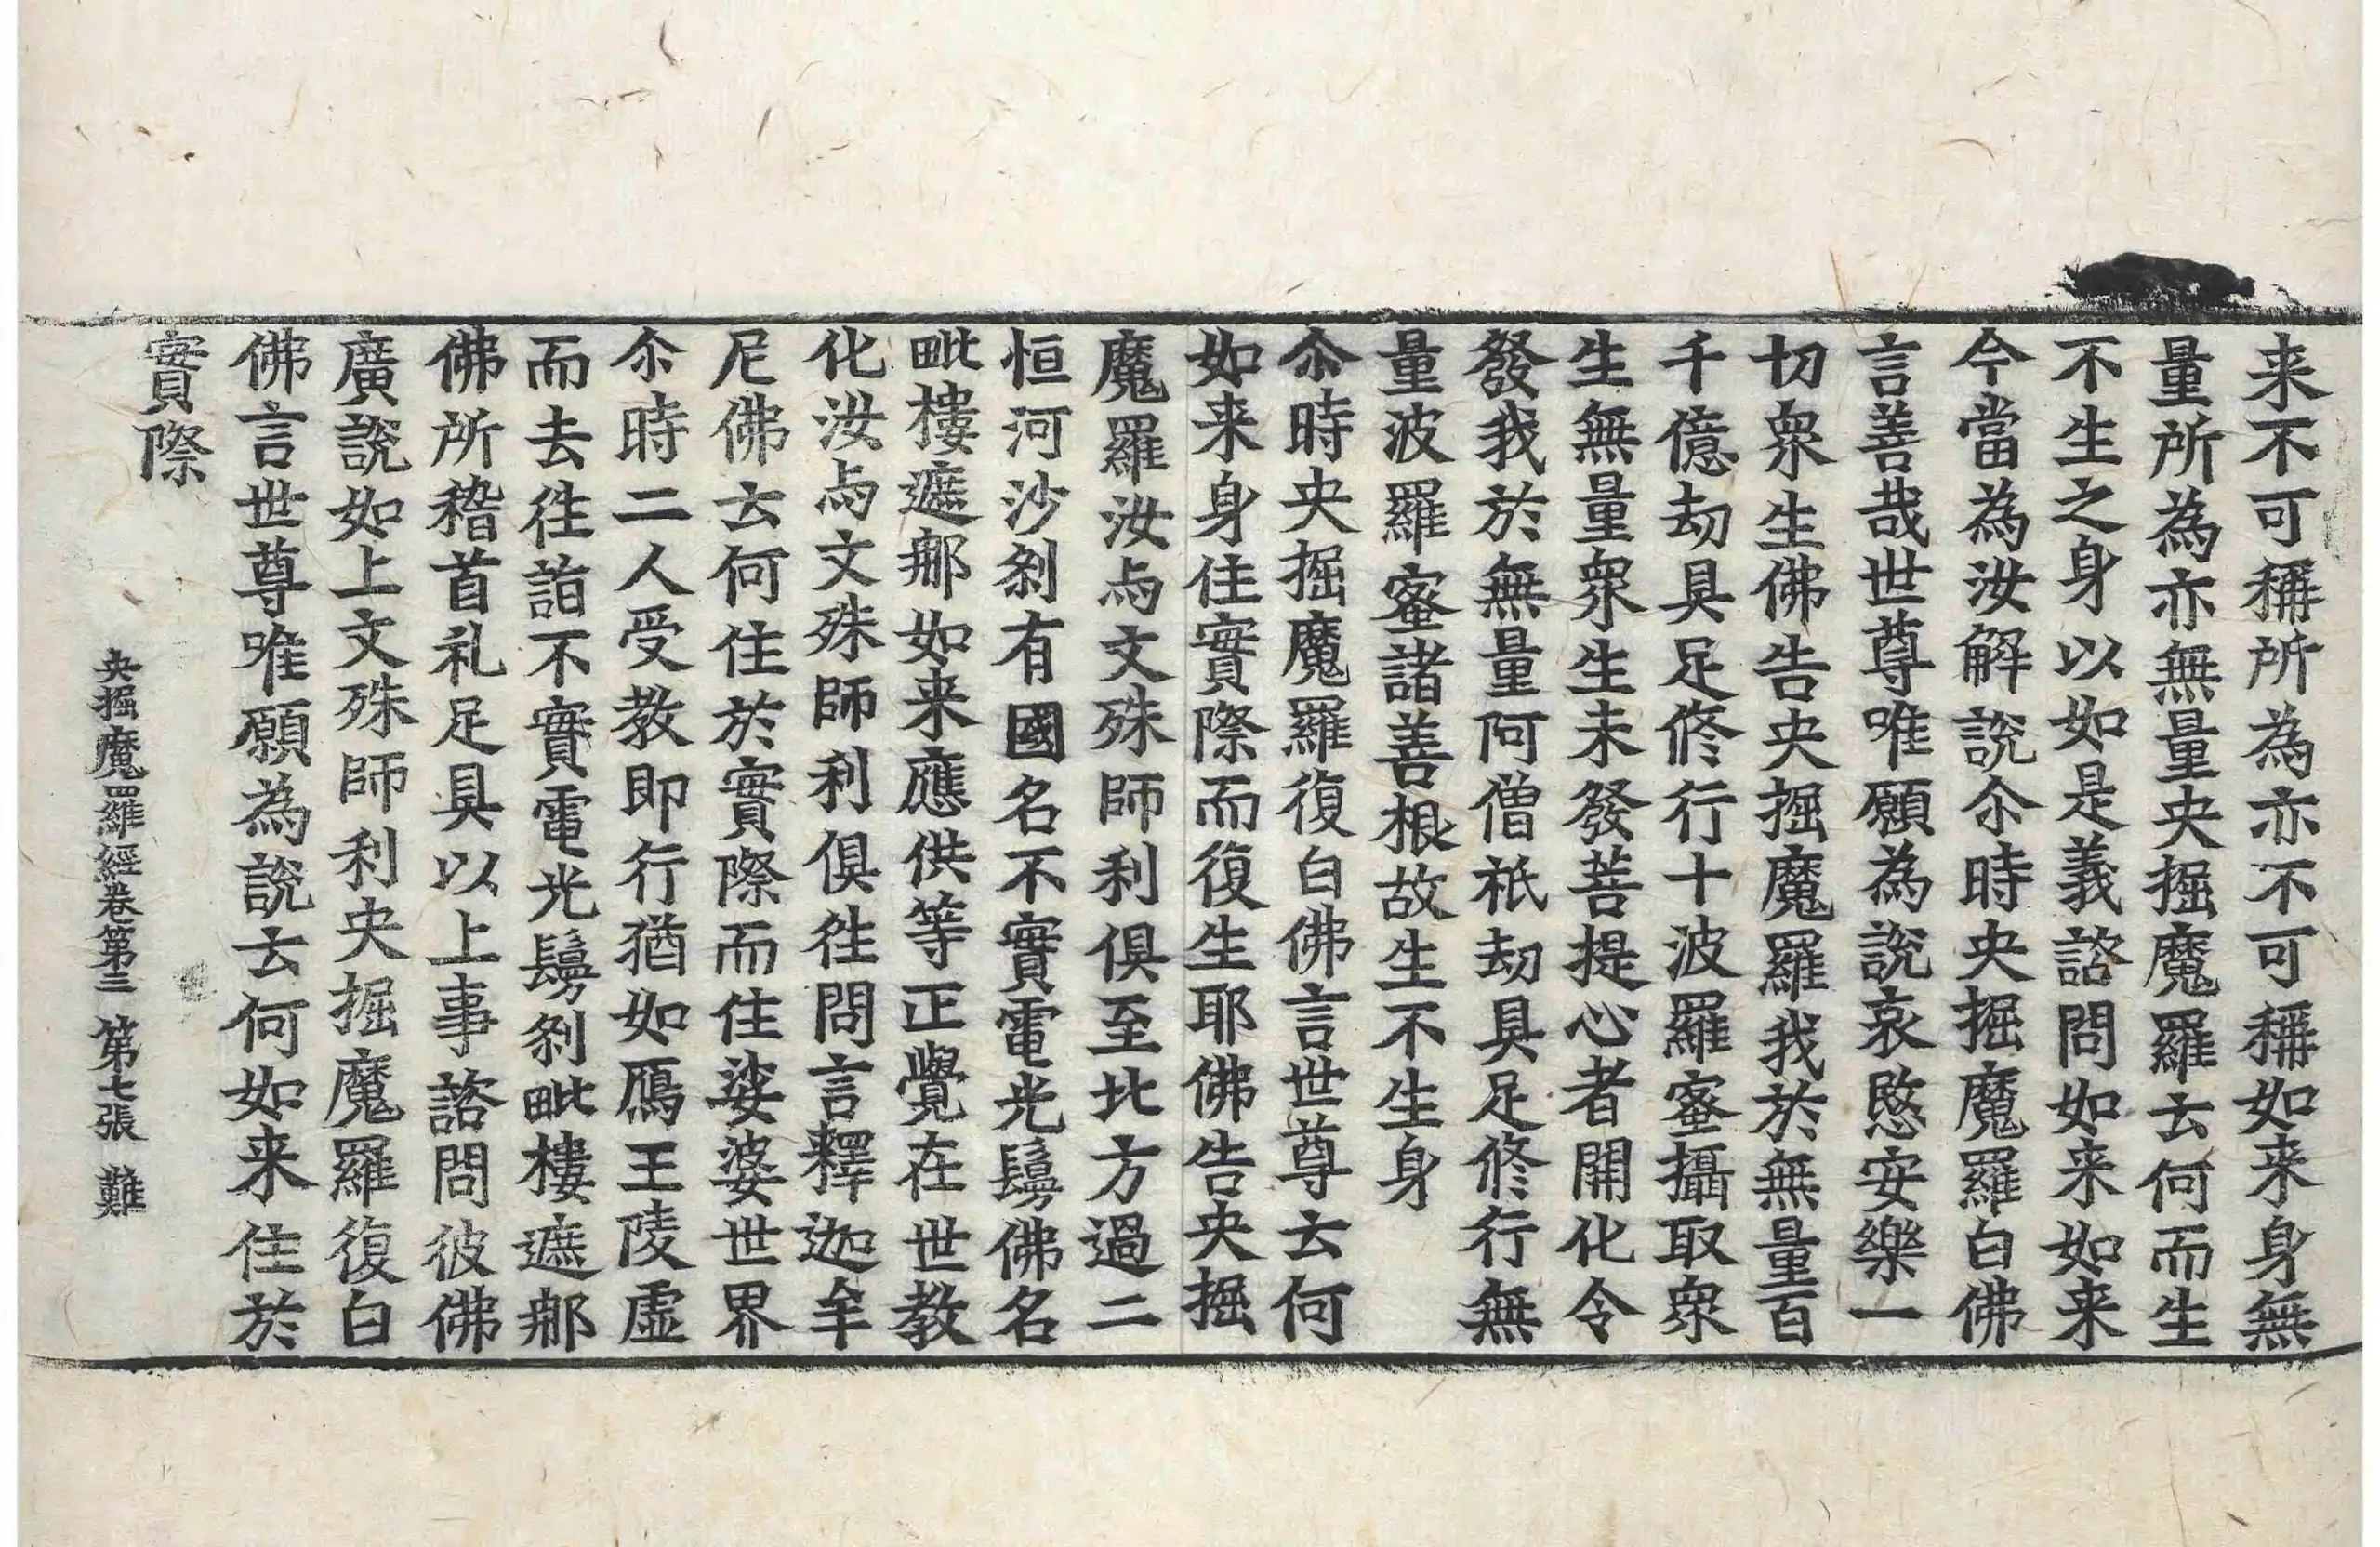 来不可稱所為亦不可稱如来身無
量所為亦無量央掘魔羅云何而生
不生之身以如是義諮問如来如来
今當為汝解說尒時央掘魔羅白佛
言善哉世尊唯願為說哀愍安樂一
切衆生佛告央掘魔羅我於無量百
千億劫具足修行十波羅蜜攝取衆
生無量衆生未發菩提心者開化令
發我於無量阿僧祇劫具足修行無
量波羅蜜諸善根故生不生身
尒時央掘魔羅復白佛言世尊云何
如来身住實際而復生耶佛告央掘
魔羅汝与文殊師利俱至北方過二
恒河沙剎有國名不實電光鬘佛名
毗樓遮那如来應供等正覺在世教
化汝与文殊師利俱往問言釋迦牟
尼佛云何住於實際而住娑婆世界
尒時二人受教即行猶如鴈王陵虛
而去往詣不實電光鬘剎毗樓遮那
佛所稽首礼足具以上事諮問彼佛
廣說如上文殊師利央掘魔羅復白
佛言世尊唯願為說云何如来住於
實際
央掘魔羅經卷第三 第七張 難